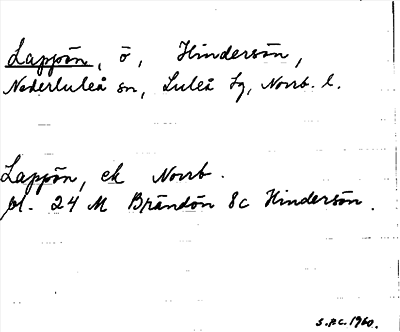 Lappön, ö, Hindersön,
Nederluleå sn, Luleå tg, Norrb. l.
Lappön, ek Norrb.
bl. 24 M Brändön 8c Hindersön.
S.P.C. 1960.